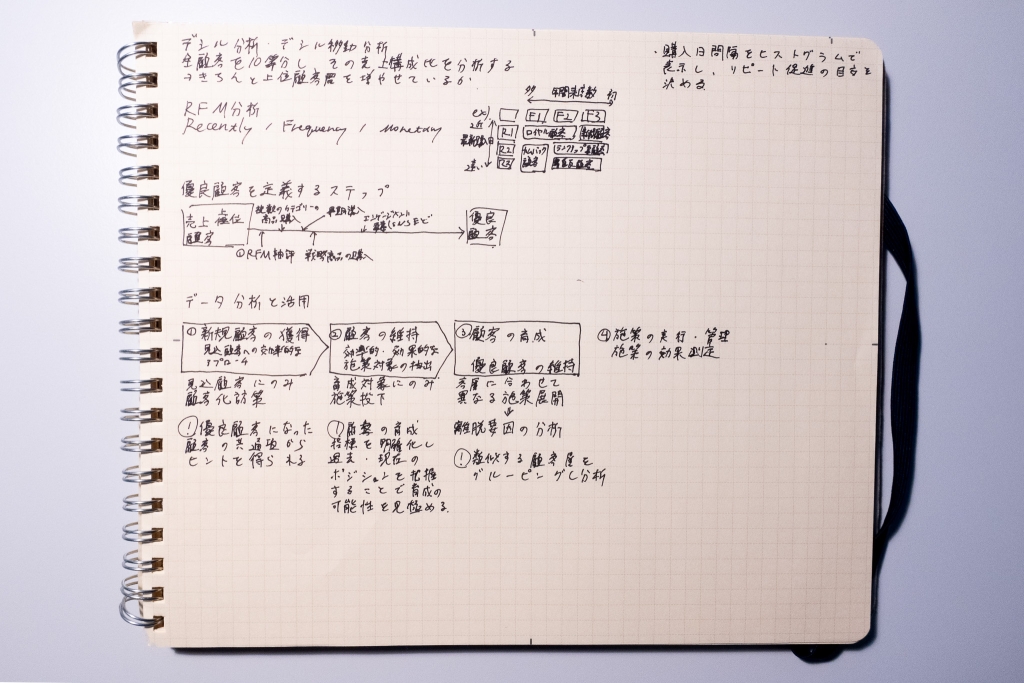 デシル分析・デシル移動分析
全顧客を10等分し、その売上構成比を分析する
→きちんと上位顧客層を増やせているか
・購入日間隔をヒストグラムで
表示し、リピート促進の目安を
決める
RFM分析
Recently / Frequency / Monetary
ex)
多 年間来店数 少
F1 F2 F3
近 R1 ロイヤル顧客
最新購入日 R2 カムバック顧客
遠い R3
優良顧客を定義するステップ
売上上位顧客
複数のカテゴリーの商品購入
優良顧客
①RFM抽出 戦略商品の購入
データ分析と活用
①新規顧客の獲得
見込顧客への効率的な
アプローチ
見込顧客にのみ
顧客化訪策
!優良顧客になった
顧客の共通項から
ヒントを得られる
②顧客の維持
効率的・効果的な
施策対象の抽出
育成対象にのみ
施策投下
!顧客の育成
指標を明確化し
過去・現在の
ポジションを把握
することで育成の
可能性を見極める
③顧客の育成
優良顧客の維持
客層に合わせて
異なる施策展開
↓
離脱要因の分析
!類似する顧客層を
グルーピングし分析
④施策の実行・管理
施策の効果測定